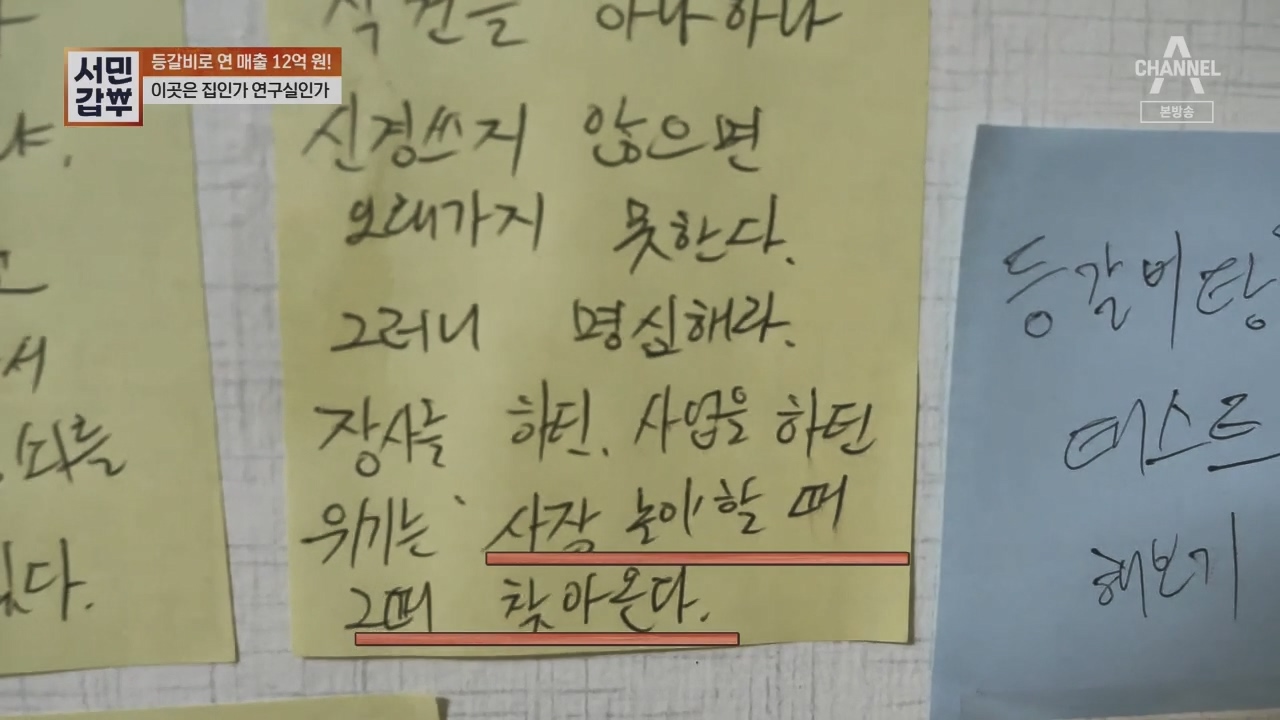 서민갑부
등갈비로 연 매출 12억 원!
이곳은 집인가 연구실인가
CHANNEL A
본방송
하나하나
신경쓰지 않으면
오래가지 못한다.
그러니 명심해라.
장사를 하던, 사업을 하던
위기는 '사장 놀이'할 때
그때 찾아온다.
등갈비탕
테스트
해보기
야.
고
서
뇌를
있다.